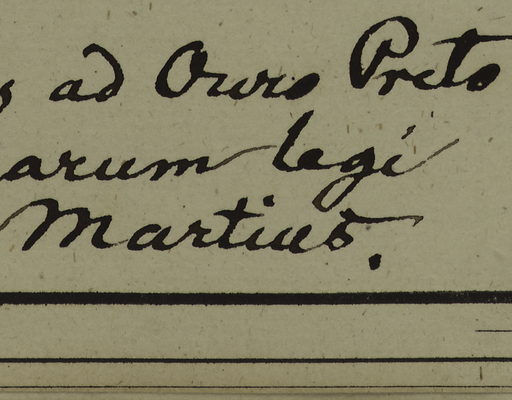 s ad Ouro Preto
arum legi
Martius.